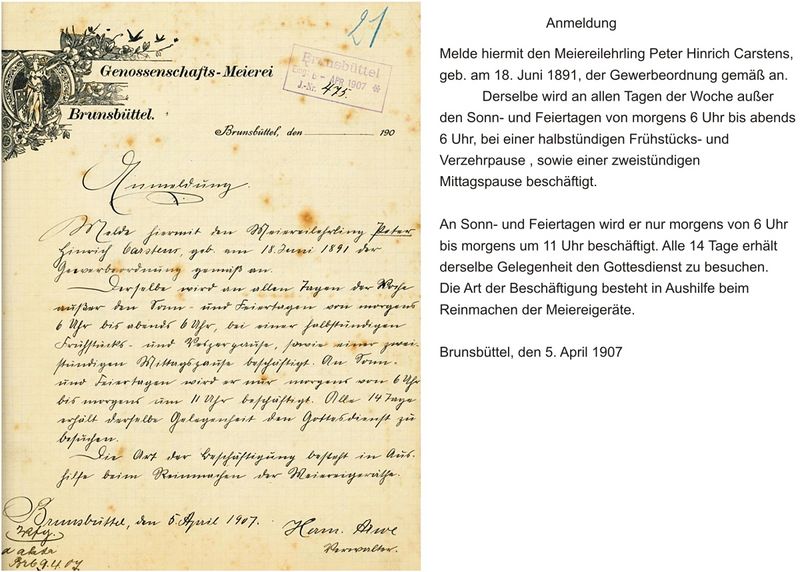 21
Genossenschafts-Meierei
Brunsbüttel.
Brunsbüttel
Eing. 6 - APR 1907
J.-Nr. 475.
Brunsbüttel, den 190
Anmeldung.
Melde hiermit den Meiereilehrling Peter
Hinrich Carstens, geb. am 18. Juni 1891 der
Gewerbeordnung gemäß an.
Derselbe wird an allen Tagen der Woche
außer den Sonn- und Feiertagen von morgens
6 Uhr bis abends 6 Uhr, bei einer halbstündigen
Frühstücks- und Vesperpause, sowie einer zwei-
stündigen Mittagspause beschäftigt. An Sonn-
und Feiertagen wird er nur morgens von 6 Uhr
bis morgens um 11 Uhr beschäftigt. Alle 14 Tage
erhält derselbe Gelegenheit den Gottesdienst zu
besuchen.
Die Art der Beschäftigung besteht in Aus-
hilfe beim Reinmachen der Meiereigeräthe.
Brunsbüttel, den 5. April 1907.
Herm.
Verwalter.
Brb 9.4.07
Anmeldung
Melde hiermit den Meiereilehrling Peter Hinrich Carstens,
geb. am 18. Juni 1891, der Gewerbeordnung gemäß an.
Derselbe wird an allen Tagen der Woche außer
den Sonn- und Feiertagen von morgens 6 Uhr bis abends
6 Uhr, bei einer halbstündigen Frühstücks- und
Verzehrpause , sowie einer zweistündigen
Mittagspause beschäftigt.
An Sonn- und Feiertagen wird er nur morgens von 6 Uhr
bis morgens um 11 Uhr beschäftigt. Alle 14 Tage erhält
derselbe Gelegenheit den Gottesdienst zu besuchen.
Die Art der Beschäftigung besteht in Aushilfe beim
Reinmachen der Meiereigeräte.
Brunsbüttel, den 5. April 1907